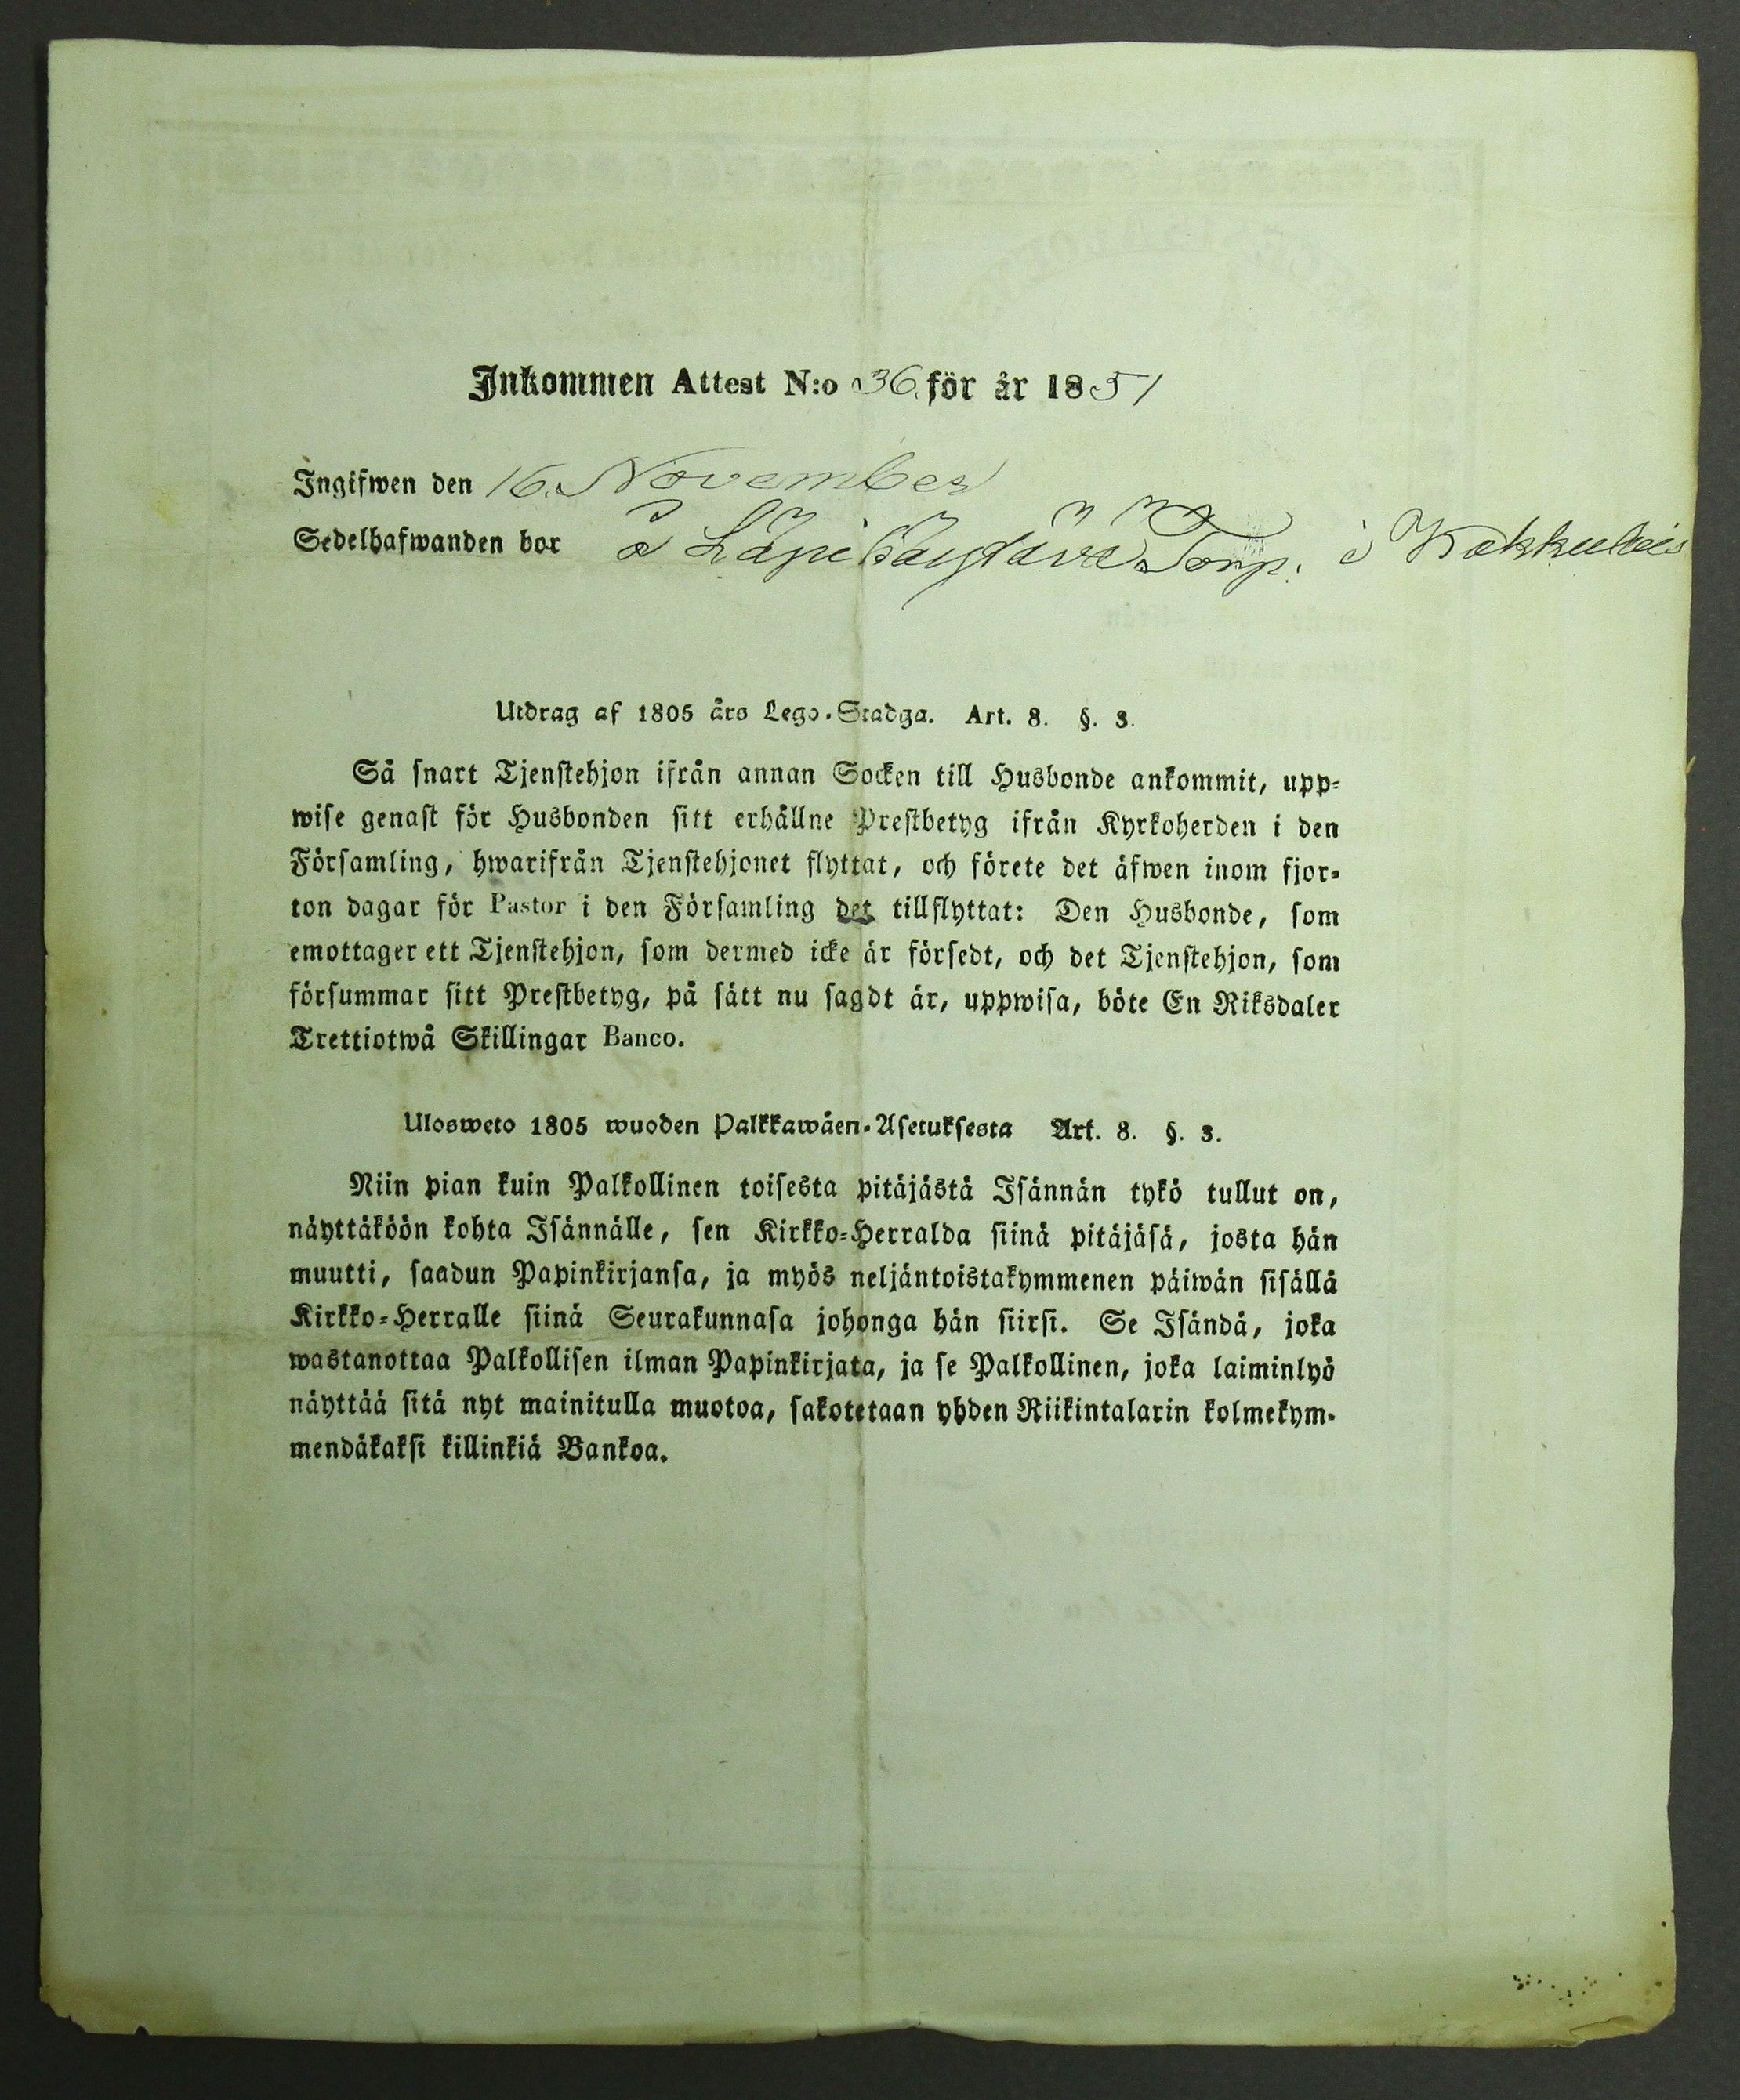 Inkommen Attest N:o 36. för år 1851
Ingifwen den 16. November
Sedelhafwanden bor å Torp. i
Utdrag af 1805 års Lego-Stadga. Art. 8. §. 3.
Så snart Tjenstehjon ifrån annan Socken till Husbonde ankommit, upp-
wise genast för Husbonden sitt erhållne Prestbetyg ifrån Kyrkoherden i den
Församling, hwarifrån Tjenstehjonet flyttat, och förete det äfwen inom fjor-
ton dagar för Pastor i den Församling det tillflyttat: Den Husbonde, som
emottager ett Tjenstehjon, som dermed icke är försedt, och det Tjenstehjon, som
försummar sitt Prestbetyg, på sätt nu sagdt är, uppwisa, böte En Riksdaler
Trettiotwå Skillingar Banco.
Ulosweto 1805 wuoden Palkkawäen-Asetuksesta Art. 8. §. 3.
Niin pian kuin Palkollinen toisesta pitäjästä Isännän tykö tullut on,
näyttäköön kohta Isännälle, sen Kirkko-Herralda siinä pitäjäsä, josta hän
muutti, saadun Papinkirjansa, ja myös neljäntoistakymmenen päiwän sisällä
Kirkko-Herralle siinä Seurakunnasa johonga hän siirsi. Se Isändä, joka
wastanottaa Palkollisen ilman Papinkirjata, ja se Palkollinen, joka laiminlyö
näyttää sitä nyt mainitulla muotoa, sakotetaan yhden Riikintalarin kolmekym-
mendäkaksi killinkiä Bankoa.